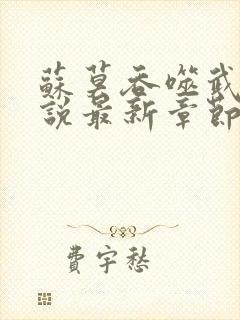 蘇莫吞噬武
說最新章節
費宇愁